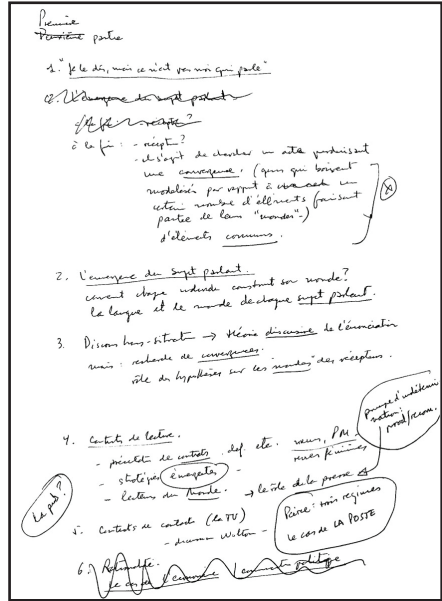 Première
Deuxième partie
1. "Je le dis, mais ce n'est pas moi qui parle"
2. L'émergence du sujet parlant
à la fin : - récepts ?
- il s'agit de chercher un acte produisant
une convergence. (gens qui
modelisés par rapport à un
certain nombre d'éléments (faisant
partie de leurs "mondes"-)
d'éléments communs.
2. L'émergence du sujet parlant.
comment chaque individu construit son monde ?
la langue et le monde de chaque sujet parlant.
3. Discours hors-situation → théorie discursive de l'énonciation
mais : recherche de convergences.
rôle des hypothèses sur les "mondes" des récepteurs.
4. Contrats de lecture.
- présentation de contrats. def. etc.
- stratégies énonciatives -
- lecteurs du Monde. → le rôle de la presse
principe d'indétermi
nation :
prod/reconn.
La pub ?
5. Contrats de contacts (la TV)
- discussion Wolton -
Peirce : trois régimes
le cas de LA POSTE
6.